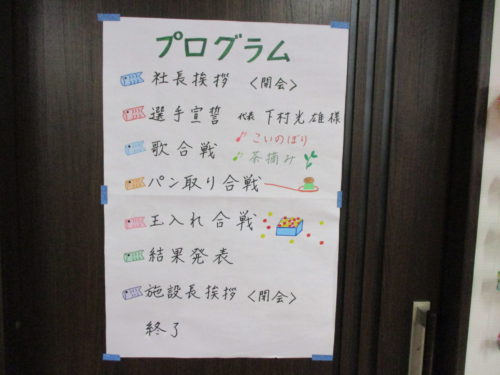 プログラム
社長挨拶 〈開会〉
選手宣誓 代表 下村光雄様
歌合戦 ♪こいのぼり
♪茶摘み
パン取り合戦
玉入れ合戦
結果発表
施設長挨拶 〈閉会〉
終了